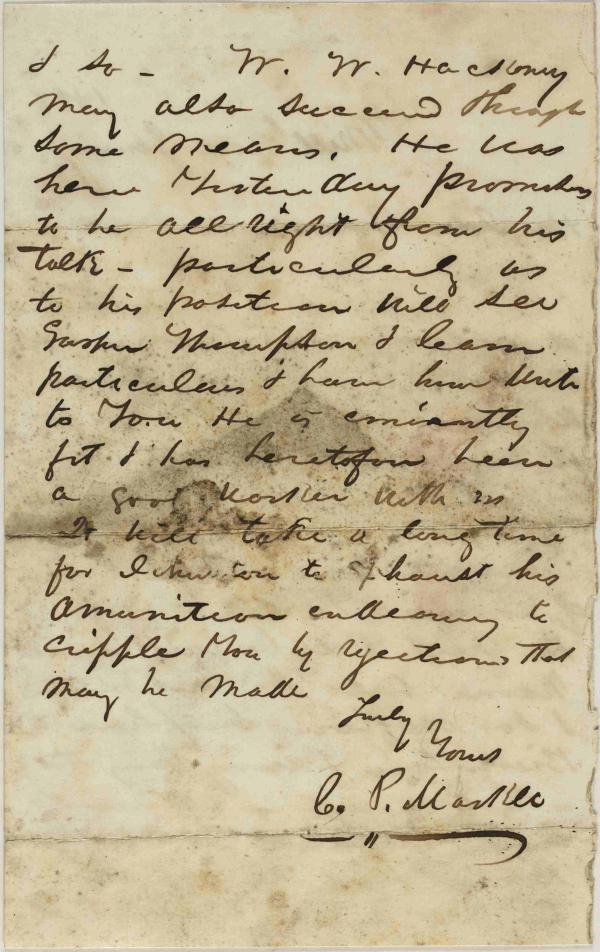 & so - W. W. Hackney
may also succeed through
some means. He was
here Yesterday promises
to be all right from his
talk - particularly as
to his position Will see
Thompson & learn
particulars & have him write
to You He is eminently
fit & has heretofore been
a good worker with us
It will take a long time
for to Exhaust his
Amunition endeavoring to
cripple You by rejections that
may be made
Truly
Yours
C. P. Markle